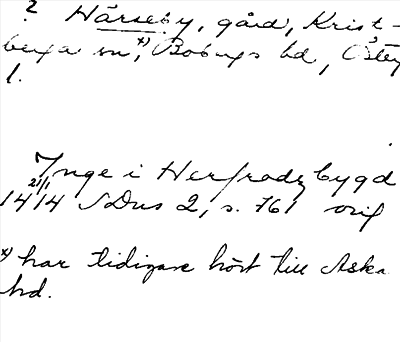 ? Hårseby, gård, Krist-
berga sn, x) Bobergs hd, Östeg
l.
Inge i Herfradzbygd
21/1
1414 SDns 2, s. 761 orig
x) har tidigare hört till Aska
hd.